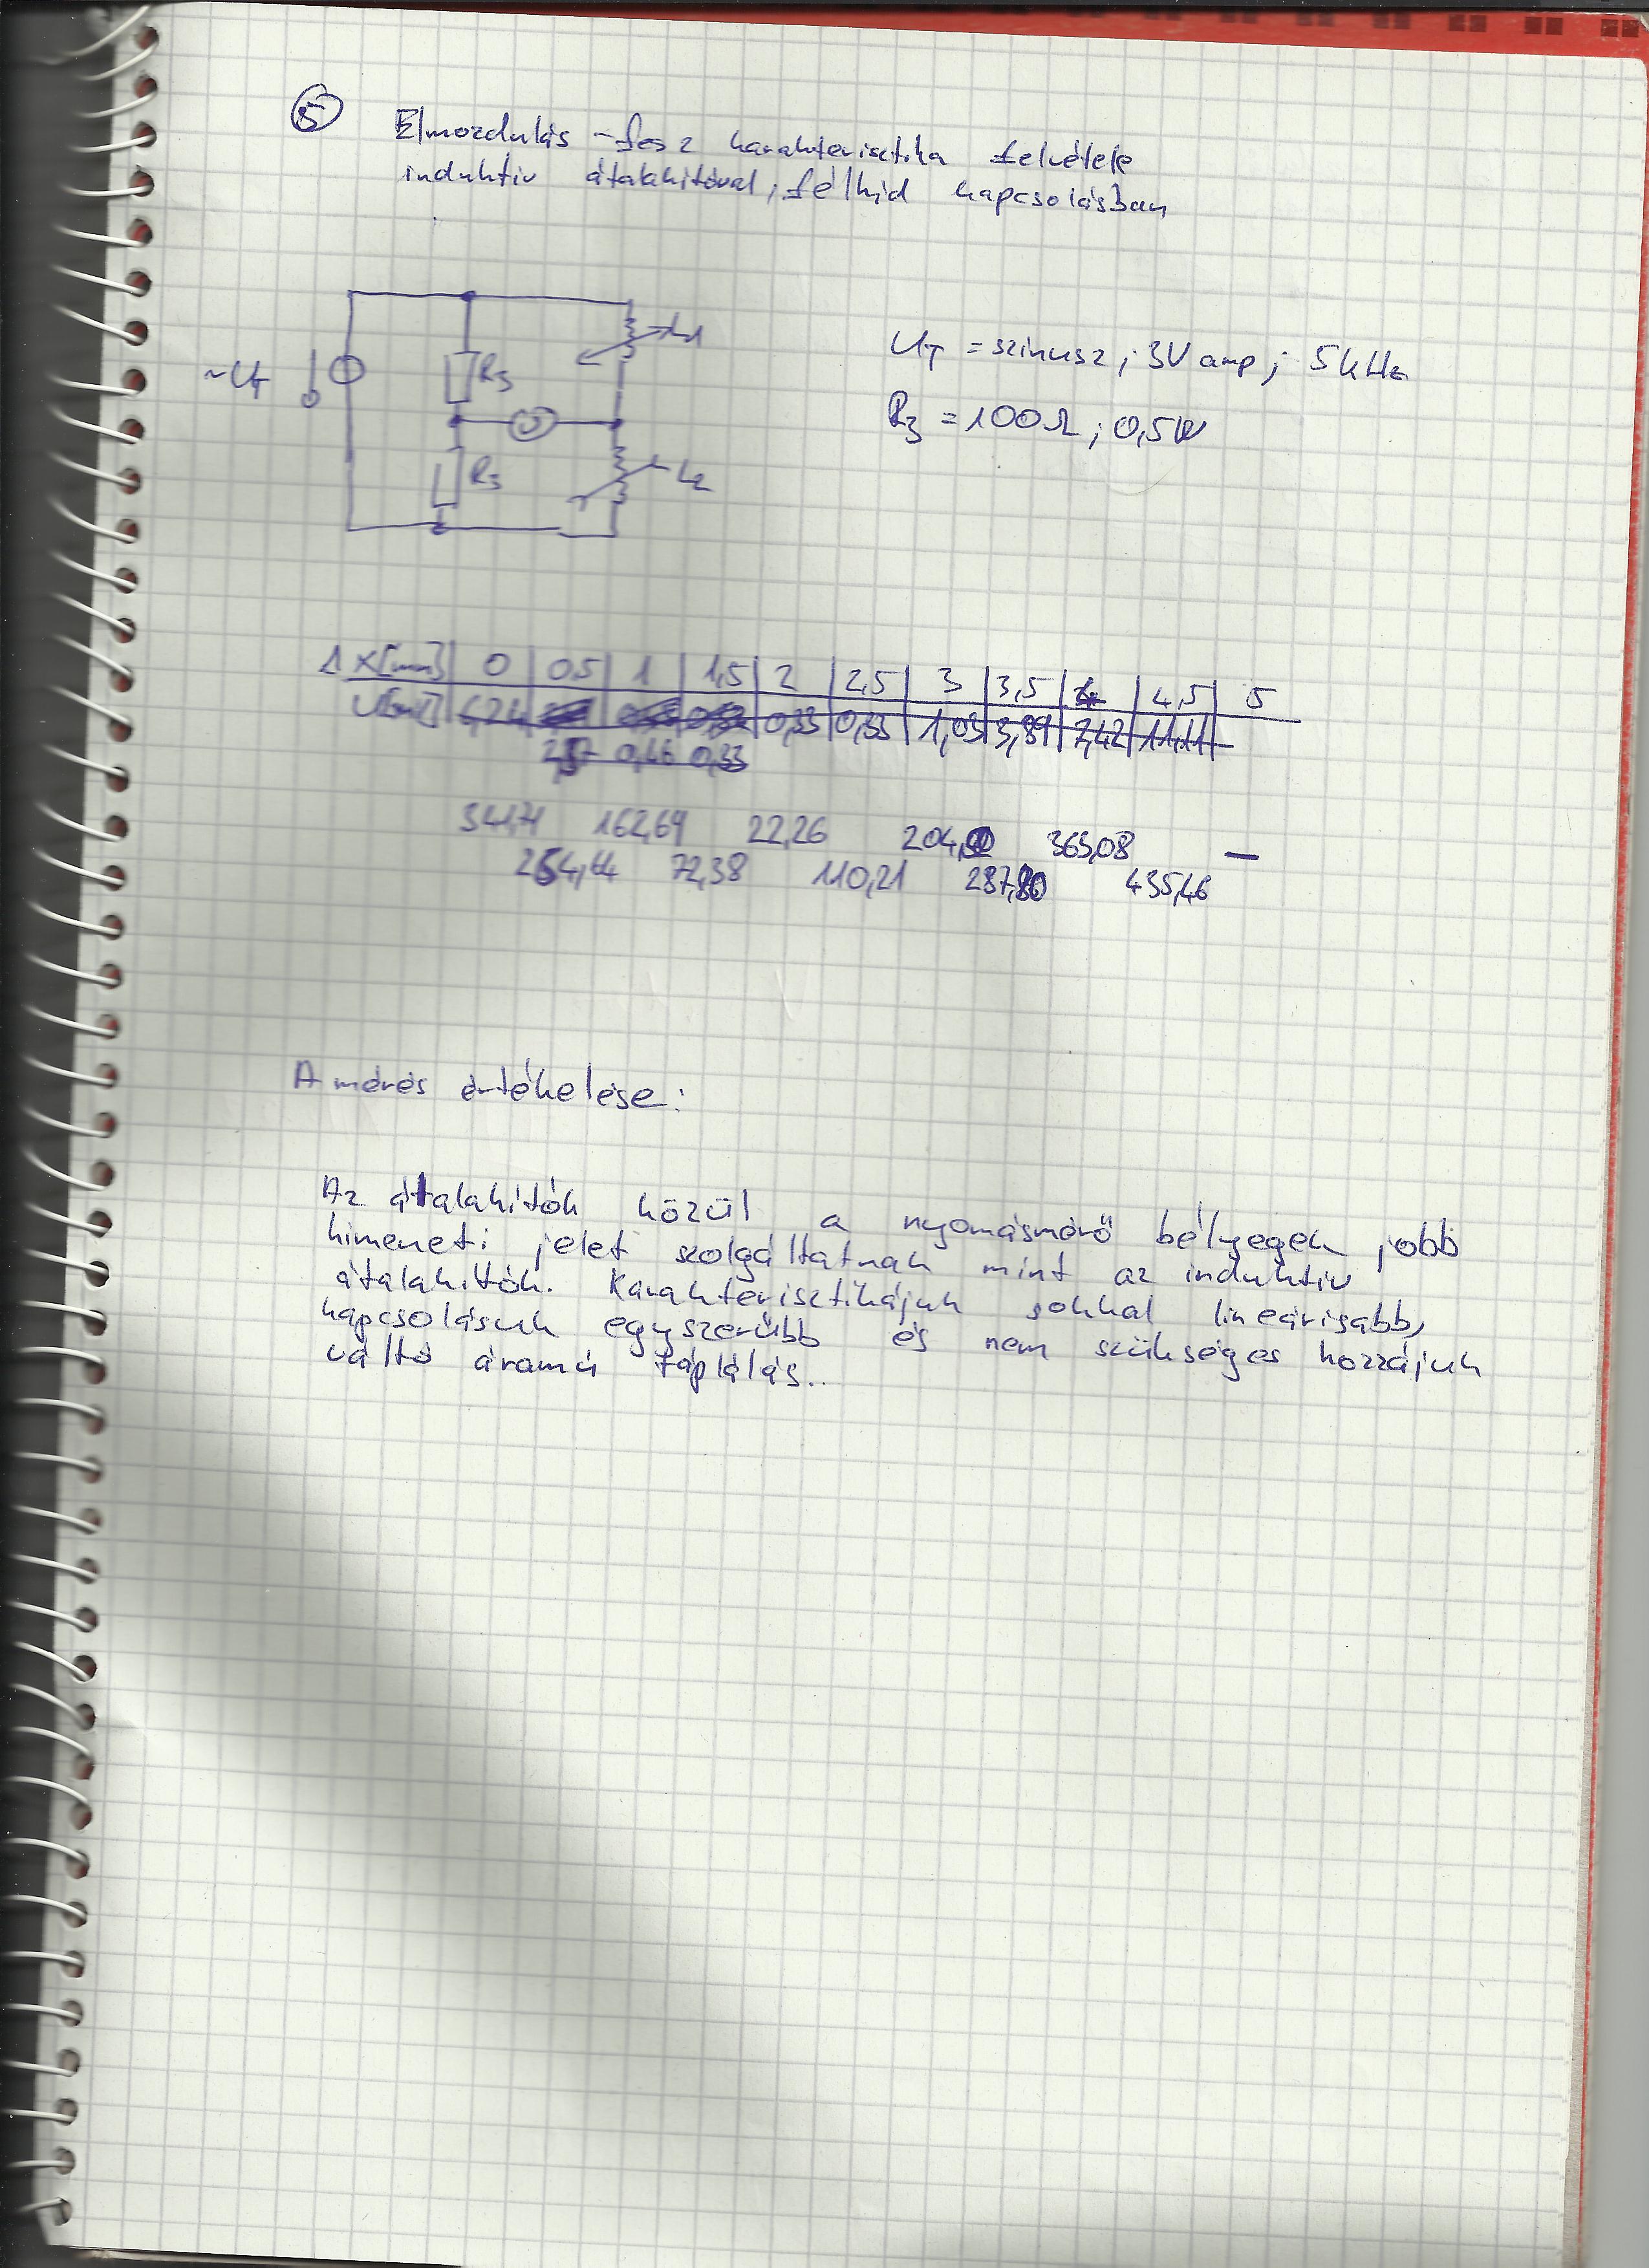 5
Elmozdulás - fesz karakterisztika felvétele
induktív átalakítóval, félhíd kapcsolásban
~UT
R3
L1
R3
L2
UT = szinusz; 3V amp; 5kHz
R3 = 100Ω; 0,5W
Δx[mm] 0 0,5 1 1,5 2 2,5 3 3,5 4 4,5 5
0,33 0,33 1,03 3,89 7,42 11,11
0,46 0,33
341,71 162,69 22,26 204, 363,08 –
254,64 72,38 110,21 287,80 435,46
A mérés értékelése:
Az átalakítók közül a nyomásmérő bélyegek jobb
kimeneti jelet szolgáltatnak mint az induktív
átalakítók. Karakterisztikájuk sokkal lineárisabb,
kapcsolásuk egyszerűbb és nem szükséges hozzájuk
váltó áramú táplálás..